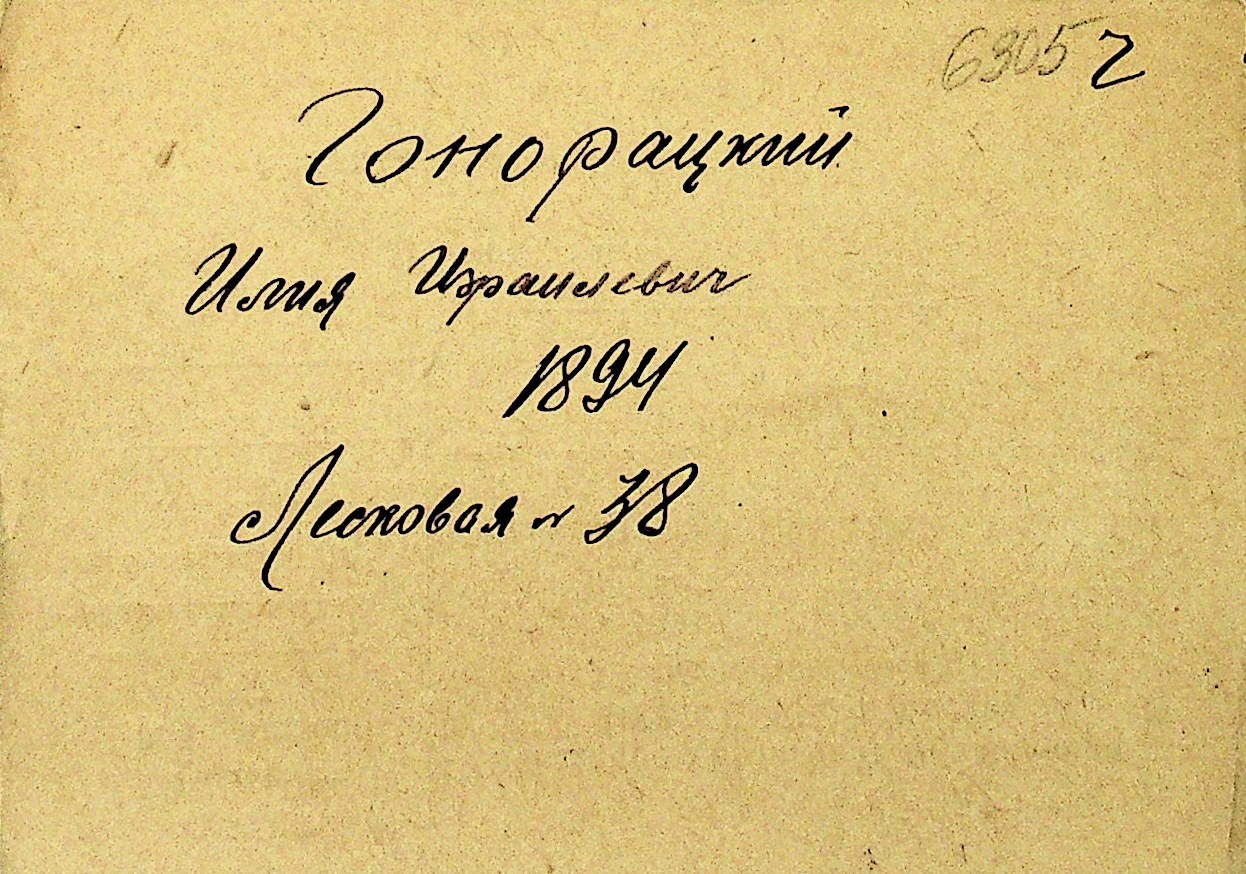 6305 г
Гонорацкий
Илия Израилевич
1894
Лесковая № 38